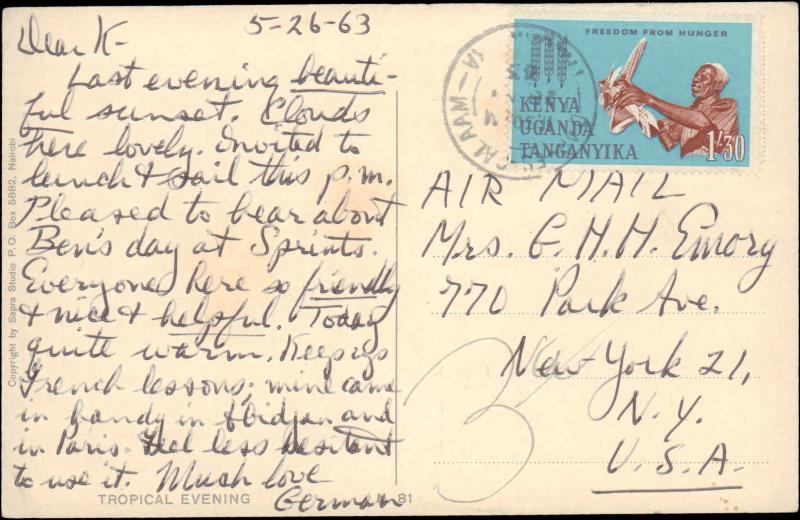 5-26-63
Dear K-
Last evening beauti-
ful sunset. Clouds
here lovely. Invited to
lunch & sail this p.m.
Pleased to hear about
Ben's day at Sprints.
Everyone here so friendly
& nice & helpful. Today
quite warm. Keep up
French lessons; mine came
in handy in Abidjan and
in Paris. Feel less hesitant
to use it. Much love
German
TROPICAL EVENING
81
Copyright by Sapra Studio P.O. Box 5882, Nairobi
FREEDOM FROM HUNGER
KENYA
UGANDA
TANGANYIKA
1/30
AIR MAIL
Mrs. G. H. H. Emory
770 Park Ave.
New York 21,
N.Y.
U.S.A.